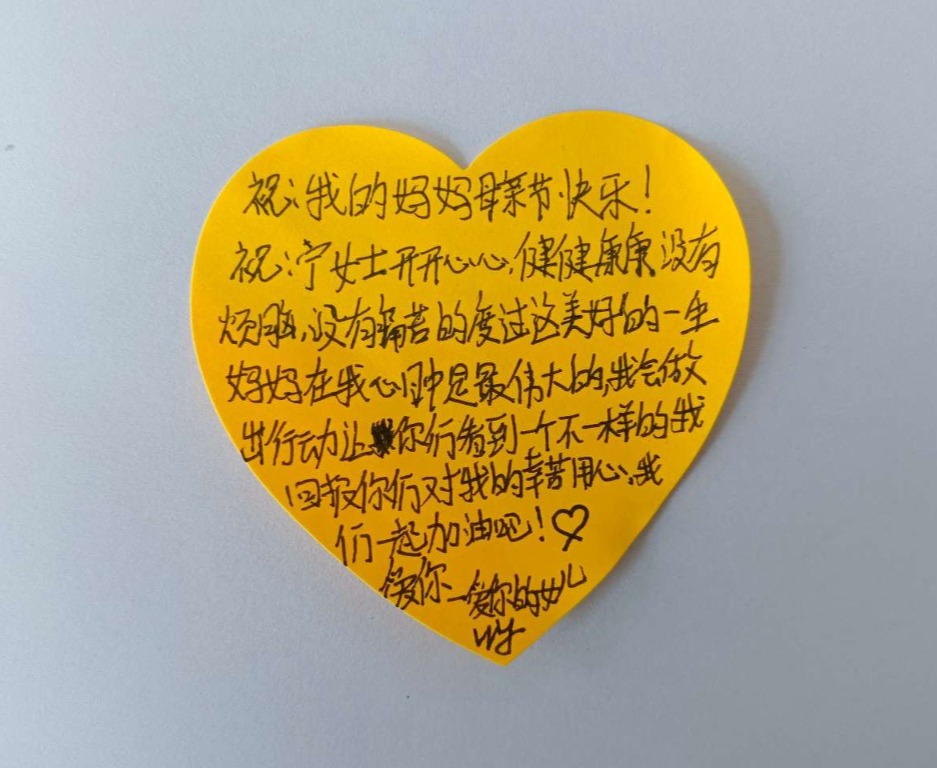 祝：我的妈妈母亲节快乐！
祝：宁女士开开心心，健健康康没有
烦恼，没有痛苦的度过这美好的一生
妈妈在我心目中是最伟大的，我会做
出行动让你们看到一个不一样的我
回报你们对我的辛苦用心，我
们一起加油吧！♡
爱你—爱你的女儿